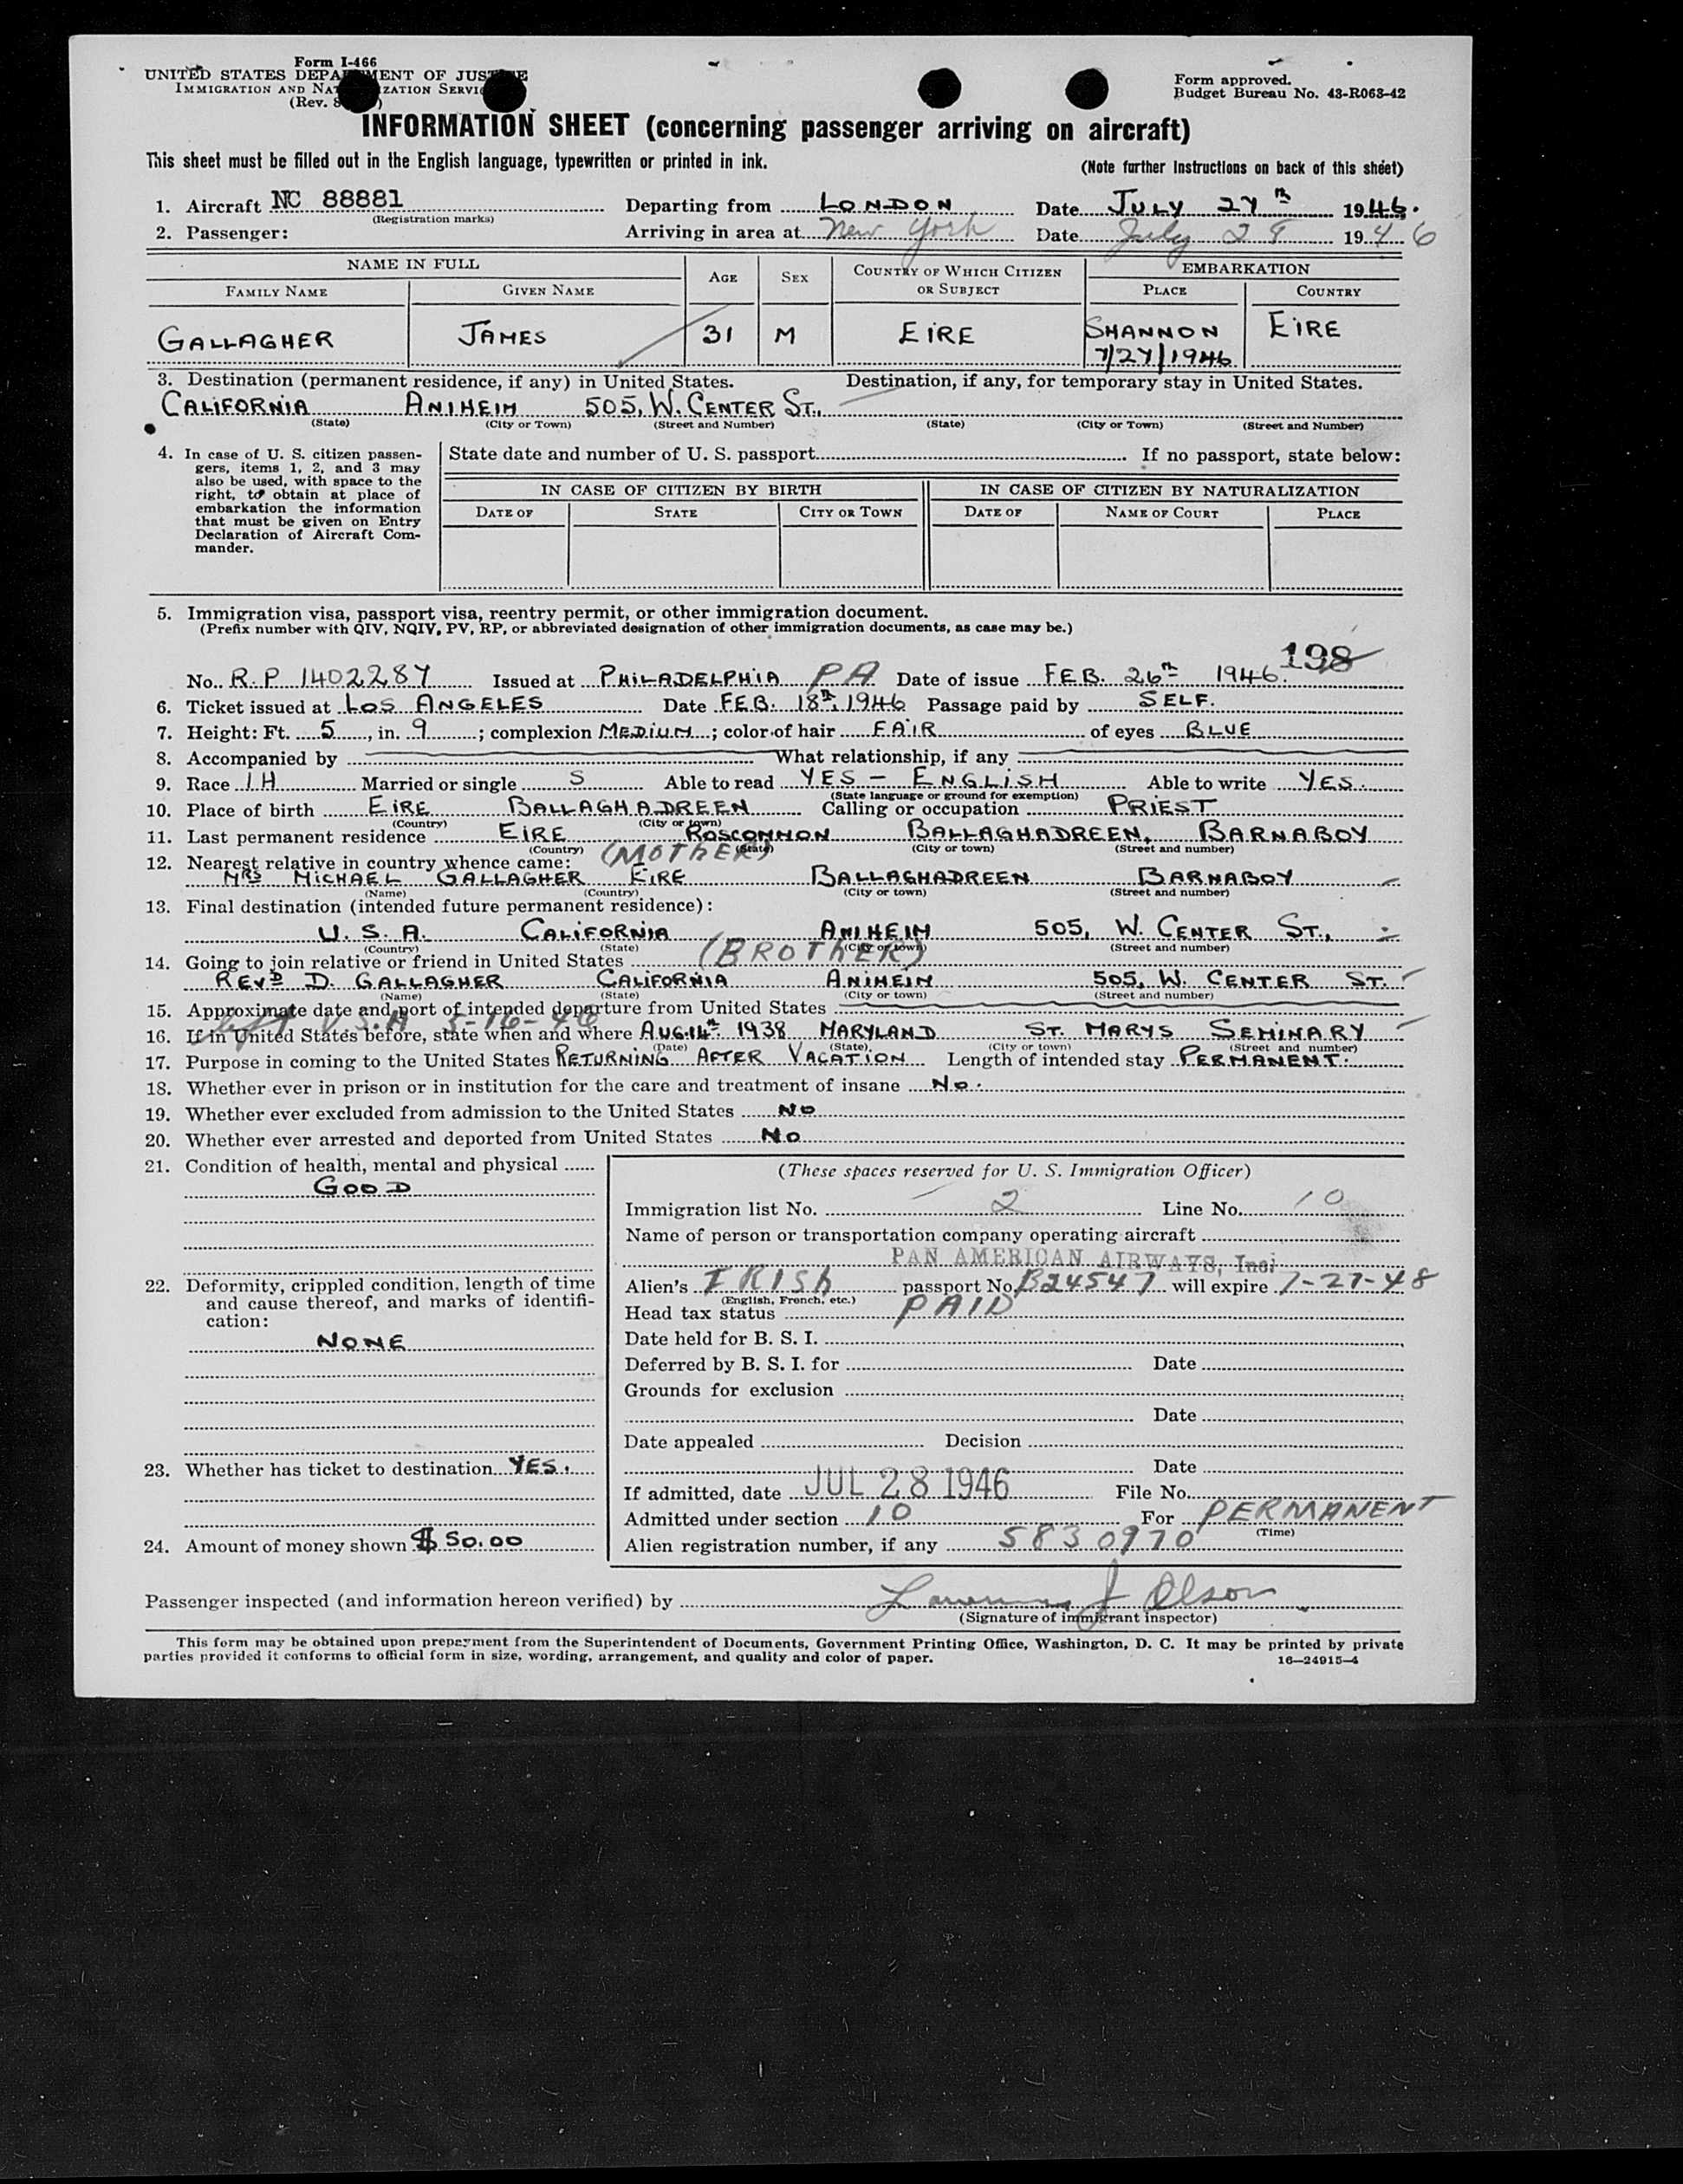 Form I-466
UNITED STATES DEPARTMENT OF JUSTICE
IMMIGRATION AND NATURALIZATION SERVICE
(Rev.
Form approved.
Budget Bureau No. 43-R063-42
INFORMATION SHEET (concerning passenger arriving on aircraft)
This sheet must be filled out in the English language, typewritten or printed in ink.
(Note further instructions on back of this sheet)
1. Aircraft NC 88881 Departing from LONDON Date JULY 27th 1946.
(Registration marks)
2. Passenger: Arriving in area at New York Date July 28 1946
NAME IN FULL AGE SEX COUNTRY OF WHICH CITIZEN OR SUBJECT EMBARKATION
FAMILY NAME GIVEN NAME PLACE COUNTRY
GALLAGHER JAMES 31 M EIRE SHANNON EIRE
7/27/1946
3. Destination (permanent residence, if any) in United States. Destination, if any, for temporary stay in United States.
CALIFORNIA ANIHEIM 505, W. CENTER ST.,
(State) (City or Town) (Street and Number) (State) (City or Town) (Street and Number)
4. In case of U. S. citizen passen-
gers, items 1, 2, and 3 may
also be used, with space to the
right, to obtain at place of
embarkation the information
that must be given on Entry
Declaration of Aircraft Com-
mander.
State date and number of U. S. passport If no passport, state below:
IN CASE OF CITIZEN BY BIRTH IN CASE OF CITIZEN BY NATURALIZATION
DATE OF STATE CITY OR TOWN DATE OF NAME OF COURT PLACE
5. Immigration visa, passport visa, reentry permit, or other immigration document.
(Prefix number with QIV, NQIV, PV, RP, or abbreviated designation of other immigration documents, as case may be.)
198
No. R.P 1402287 Issued at PHILADELPHIA PA Date of issue FEB. 26th 1946.
6. Ticket issued at LOS ANGELES Date FEB. 18th, 1946 Passage paid by SELF.
7. Height: Ft. 5, in. 9; complexion MEDIUM; color of hair FAIR of eyes BLUE
8. Accompanied by What relationship, if any
9. Race IH Married or single S Able to read YES - ENGLISH Able to write YES.
(State language or ground for exemption)
10. Place of birth EIRE BALLAGHADREEN Calling or occupation PRIEST
(Country) (City or town)
11. Last permanent residence EIRE ROSCOMMON BALLAGHADREEN, BARNABOY
(Country) (State) (City or town) (Street and number)
12. Nearest relative in country whence came: (MOTHER)
MRS MICHAEL GALLAGHER EIRE BALLAGHADREEN BARNABOY
(Name) (Country) (City or town) (Street and number)
13. Final destination (intended future permanent residence):
U. S. A. CALIFORNIA ANIHEIM 505, W. CENTER ST.,
(Country) (State) (City or town) (Street and number)
14. Going to join relative or friend in United States (BROTHER)
REVD D. GALLAGHER CALIFORNIA ANIHEIM 505, W. CENTER ST.
(Name) (State) (City or town) (Street and number)
15. Approximate date and port of intended departure from United States
left U.S.A 5-16-46
16. If in United States before, state when and where AUG. 14th 1938 MARYLAND ST. MARYS SEMINARY
(Date) (State) (City or town) (Street and number)
17. Purpose in coming to the United States RETURNING AFTER VACATION Length of intended stay PERMANENT.
18. Whether ever in prison or in institution for the care and treatment of insane NO.
19. Whether ever excluded from admission to the United States NO
20. Whether ever arrested and deported from United States NO
21. Condition of health, mental and physical
GOOD
22. Deformity, crippled condition, length of time
and cause thereof, and marks of identifi-
cation:
NONE
23. Whether has ticket to destination YES.
24. Amount of money shown $50.00
(These spaces reserved for U. S. Immigration Officer)
Immigration list No. 2 Line No. 10
Name of person or transportation company operating aircraft
PAN AMERICAN AIRWAYS, Inc.
Alien's IRISh passport No. B24547 will expire 7-27-48
(English, French, etc.)
Head tax status PAID
Date held for B. S. I.
Deferred by B. S. I. for Date
Grounds for exclusion
Date
Date appealed Decision
Date
If admitted, date JUL 28 1946 File No.
Admitted under section 10 For PERMANENT
(Time)
Alien registration number, if any 5830970
Passenger inspected (and information hereon verified) by Lawrence J Olson
(Signature of immigrant inspector)
This form may be obtained upon prepayment from the Superintendent of Documents, Government Printing Office, Washington, D. C. It may be printed by private
parties provided it conforms to official form in size, wording, arrangement, and quality and color of paper.
16—24915-4